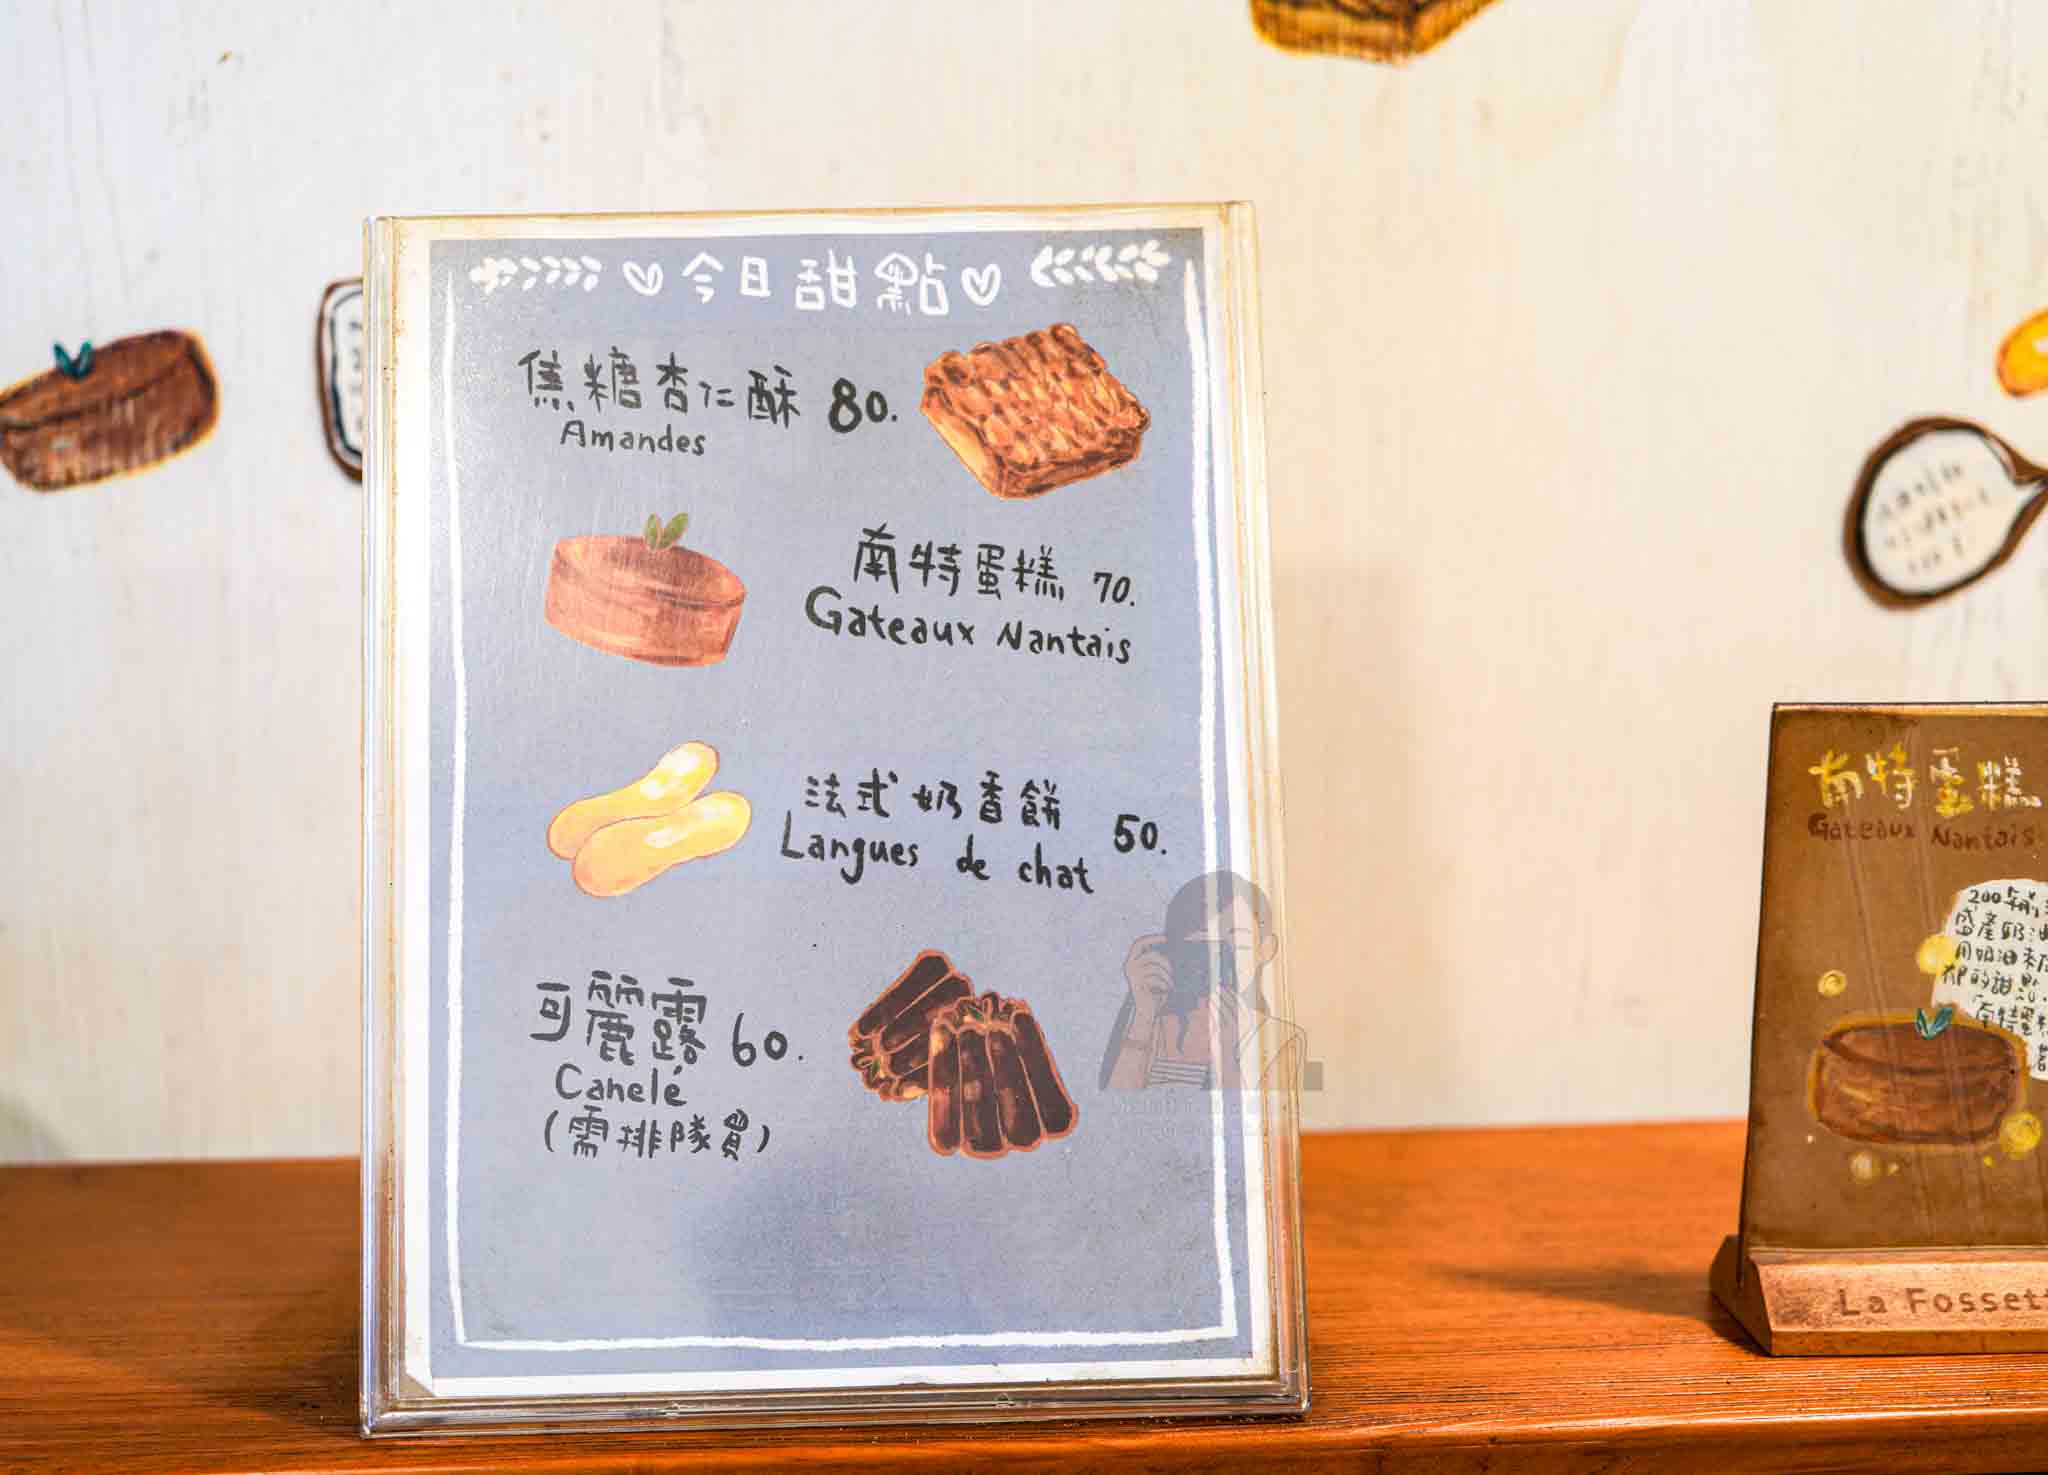 今日甜點
焦糖杏仁酥 80.
Amandes
南特蛋糕 70.
Gateaux Nantais
法式奶香餅 50.
Langues de chat
可麗露 60.
Canelé
(需排隊買)
南特蛋糕
Gateaux Nantais
200年前
盛產奶油
用奶油
的甜點
南特蛋糕
La Fosset